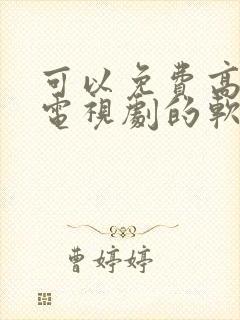 可以免費高
電視劇的軟
曹婷婷